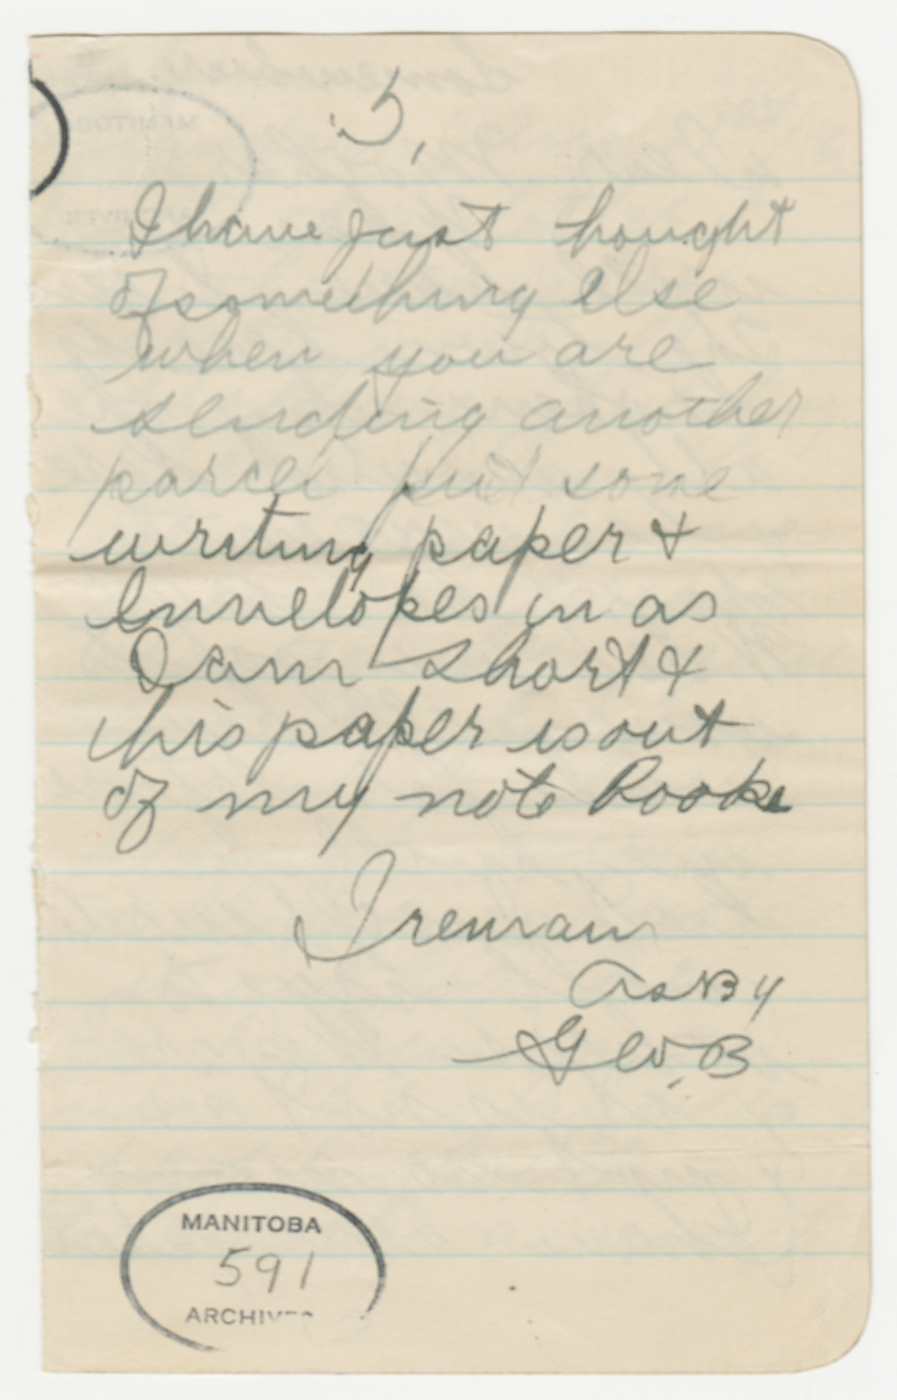 5,
I have just thought
of something else
when you are
sending another
parcel put some
writing paper &
envelopes in as
I am short &
this paper is out
of my note Book
I remain
as By
Geo. B
MANITOBA
591
ARCHIVES